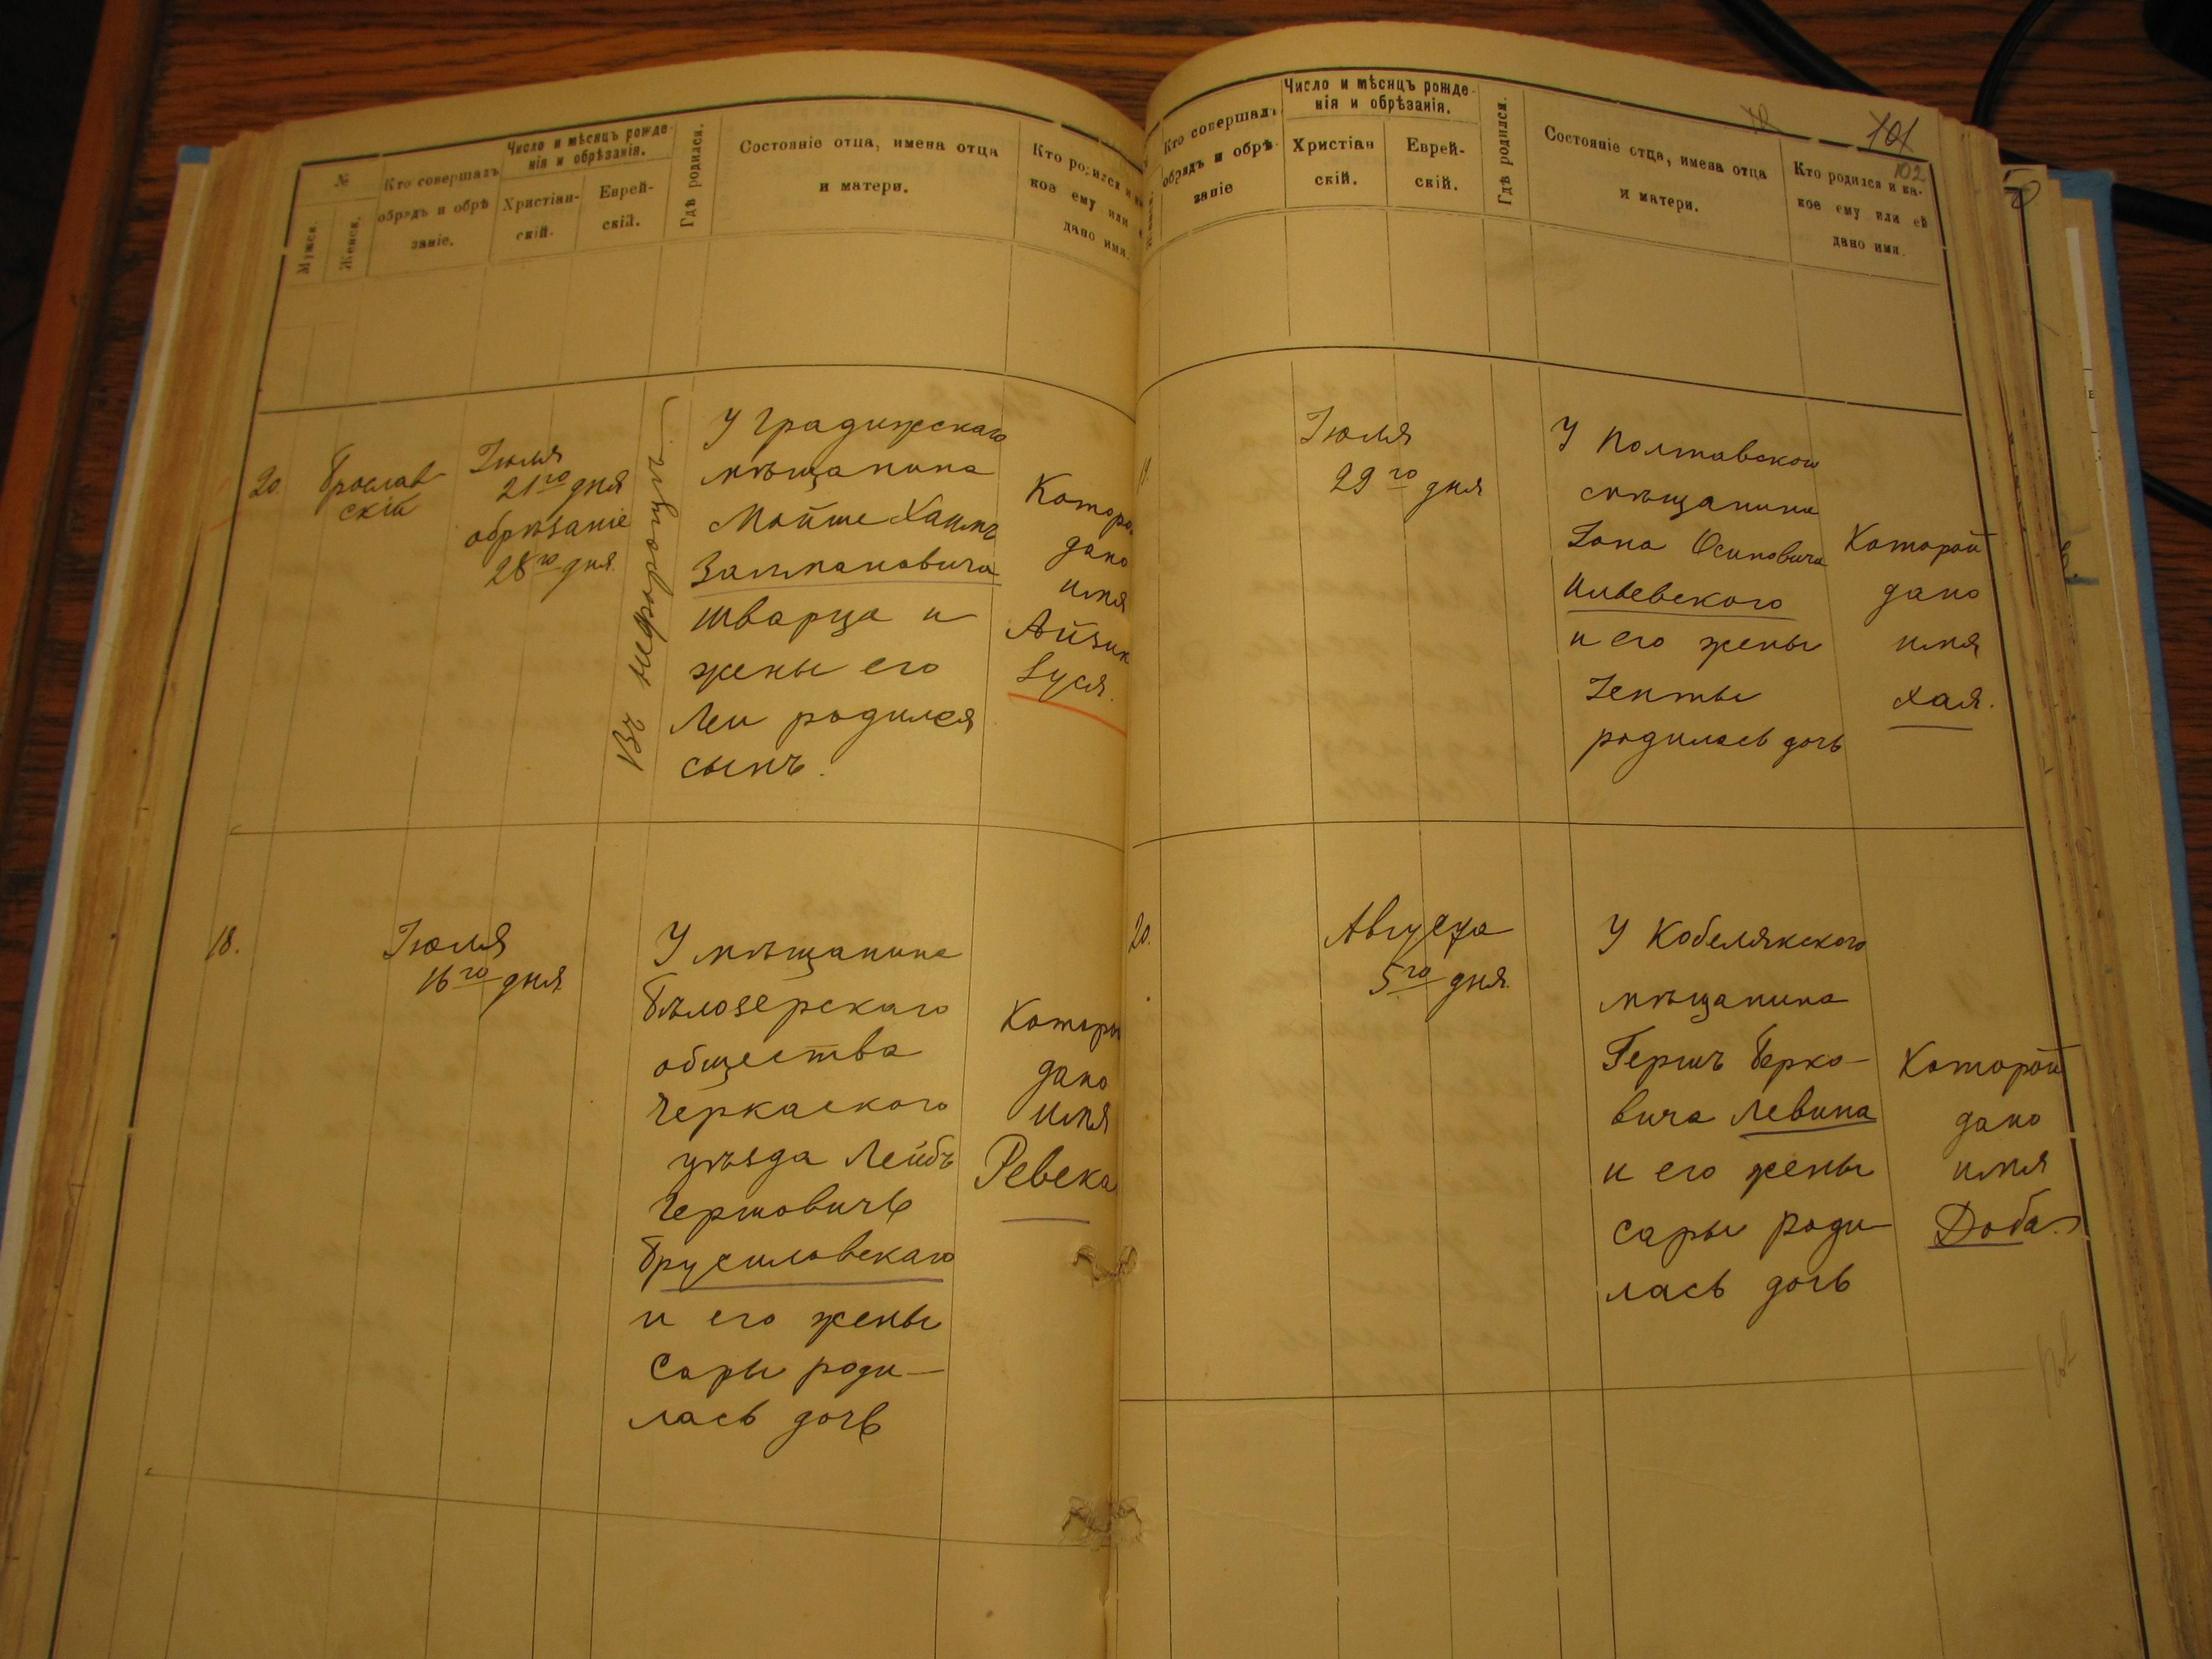 №
Мужск.
Женск.
Кто совершалъ
обрядъ и обрѣ
заніе.
Число и мѣсяцъ рожде-
нія и обрѣзанія.
Христіан-
скій.
Еврей-
скій.
Гдѣ родился.
Состояніе отца, имена отца
и матери.
Кто родился и
кое ему или
дано имя.
20.
Брослав
скій
Іюля
21го дня
обрѣзаніе
28го дня.
Въ
У Градижскаго
мѣщанина
Мойше Хаимъ
Залмановича
Шварца и
жены его
Леи родился
сынъ.
Котор
дано
имя
Айзик
Дуся.
18.
Іюля
16го дня
У мѣщанина
Бѣлозерскаго
общества
Черкаского
уѣзда Лейбъ
Гершовичь
Брусиловскаго
и его жены
Сары роди-
лась дочь
Которы
дано
имя
Ревека
101
102
Кто совершалъ
обрядъ и обрѣ-
заніе
Число и мѣсяцъ рожде-
нія и обрѣзанія.
Христіан
скій.
Еврей-
скій.
Гдѣ родился.
Состояніе отца, имена отца
и матери.
Кто родился и ка-
кое ему или ей
дано имя.
Іюля
29го дня
У Полтавского
мѣщанина
Осиповича
и его жены
родилась дочь
Которой
дано
имя
Хая.
20.
Августа
5го дня.
У Кобелякского
мѣщанина
Гершъ Берко-
вича Левина
и его жены
Сары роди-
лась дочь
Которой
дано
имя
Доба.